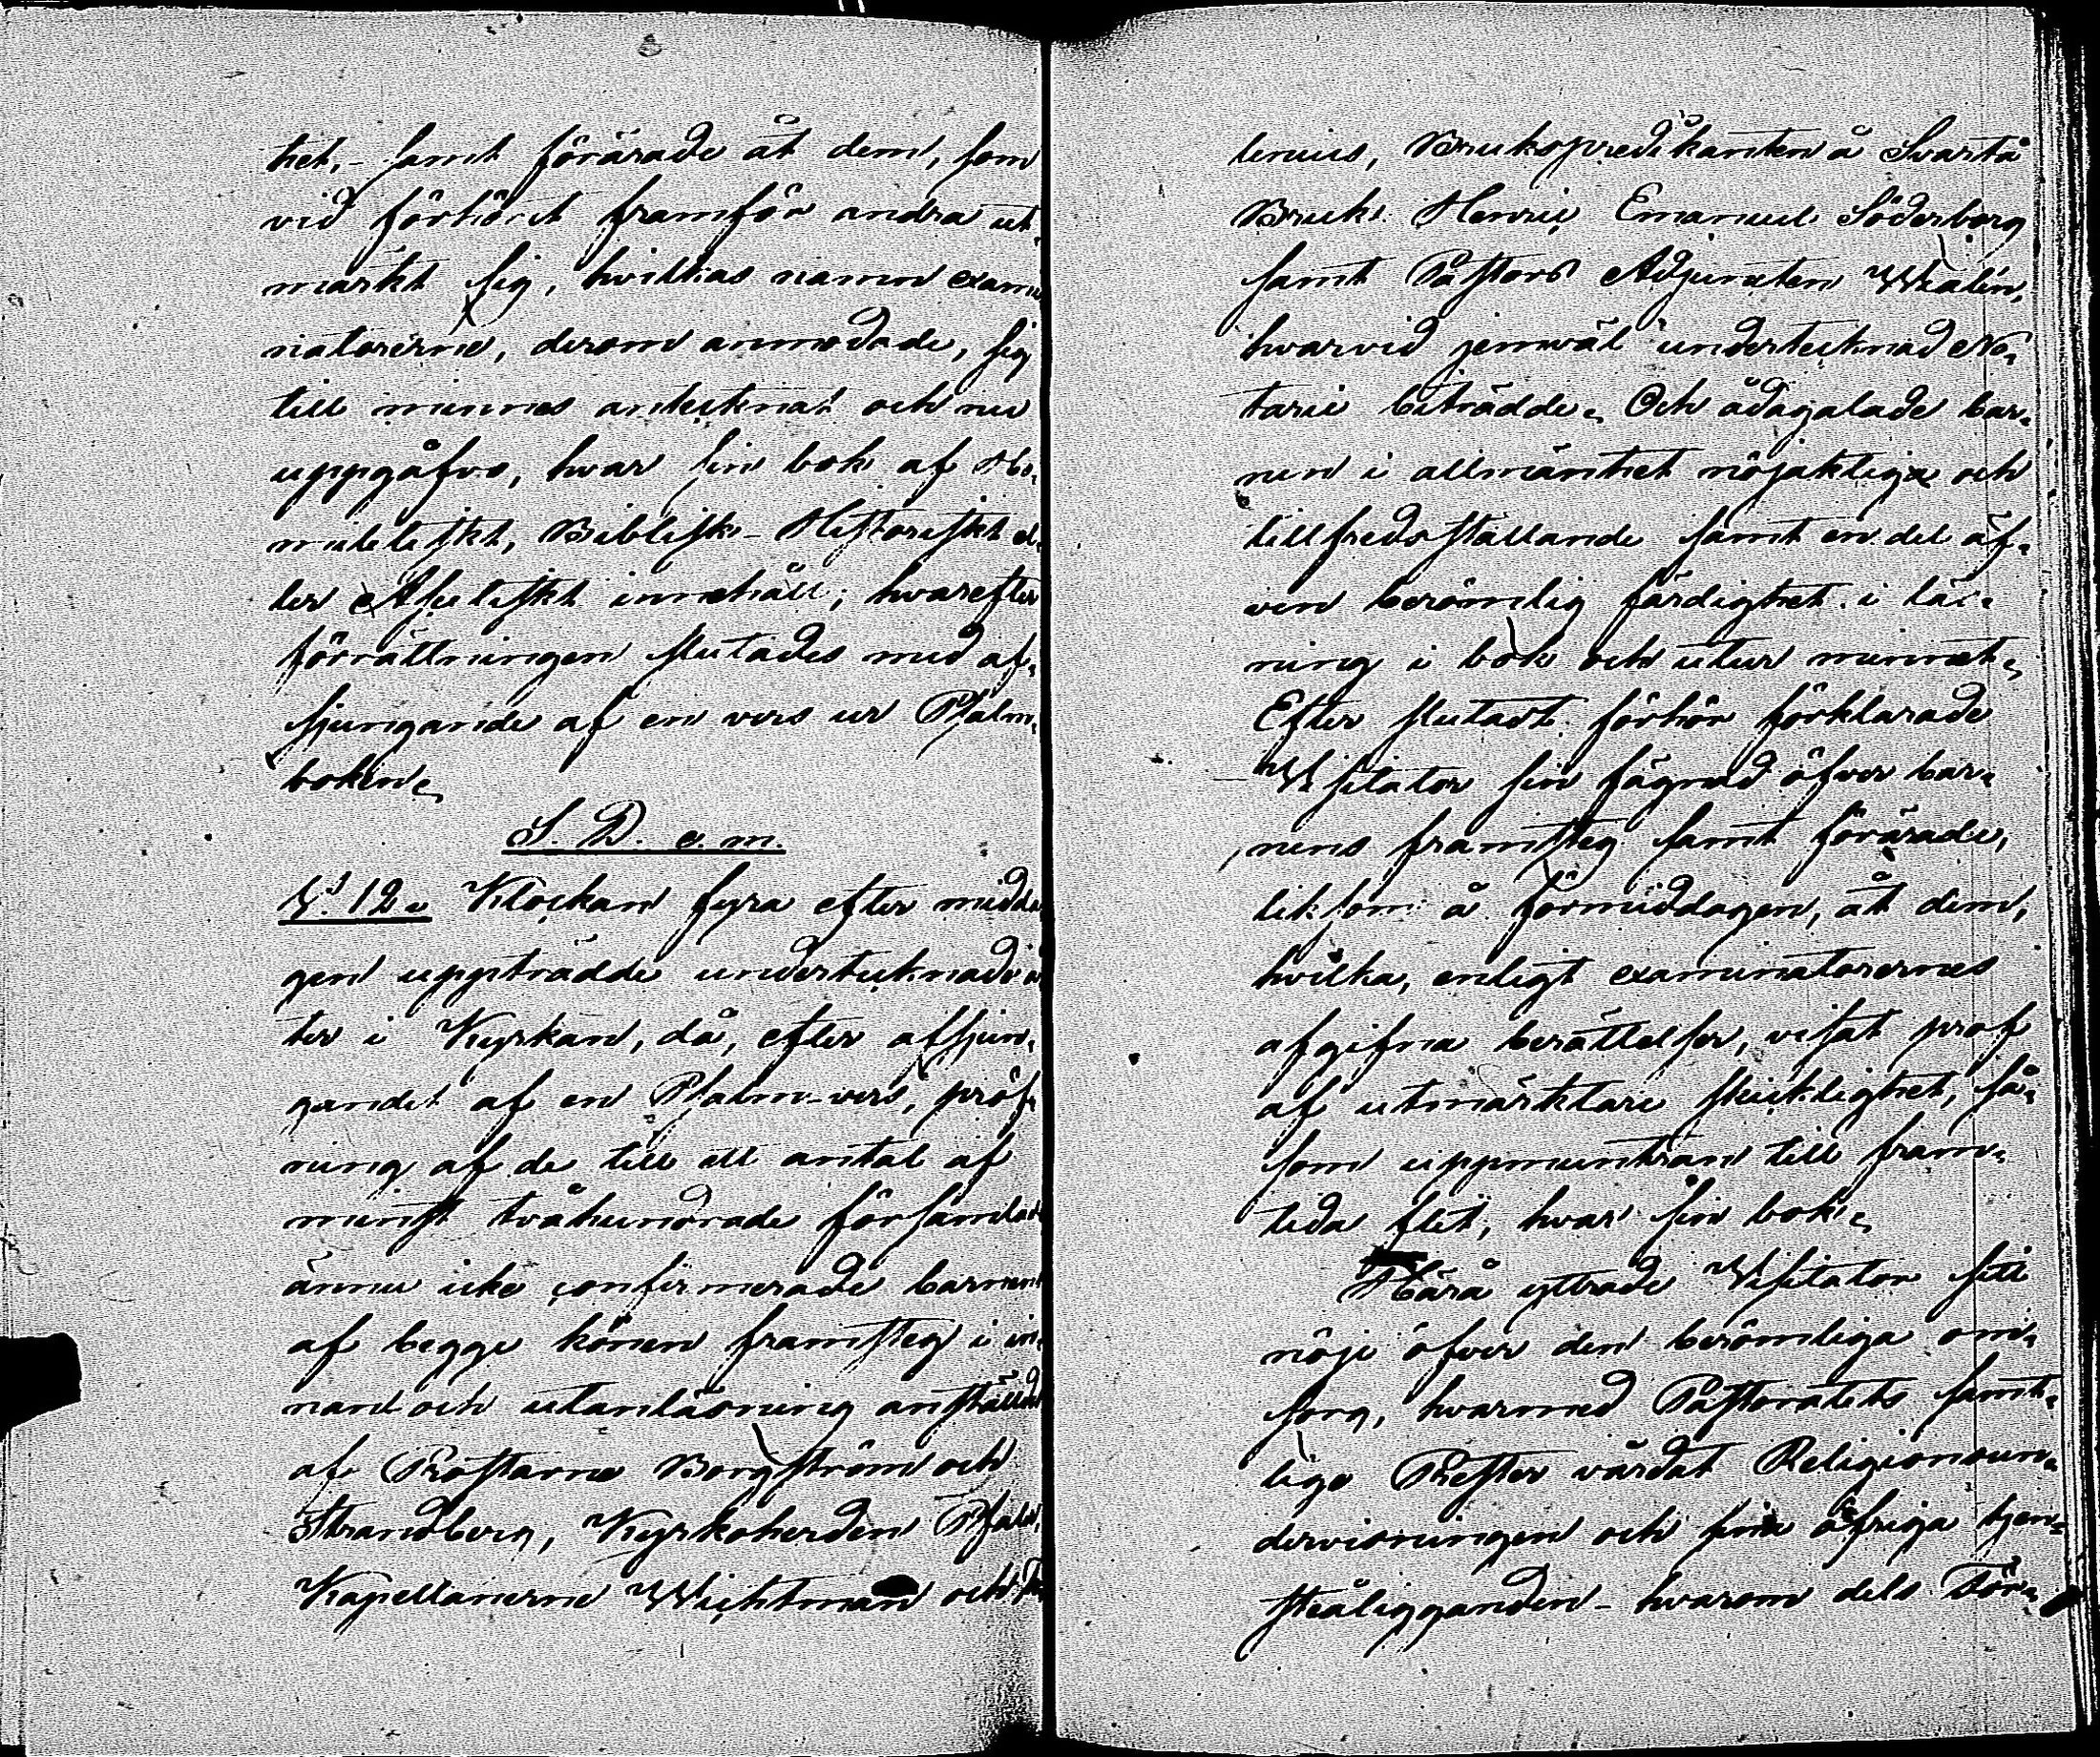 het, - samt förärade åt dem, som
vid förhöret framför andra ut-
märkt sig, hvilkas namn exami-
natorerne, derom anmodade, sig
till minnes antecknat och nu
uppgåfvo, hvar sin bok af Ho-
miletiskt, Biblisk-Historiskt el-
ler Asketiskt innehåll; hvarefter
förrättningen slutades med af-
sjungande af en vers ur Psalm-
boken.
S. D. e. m.
§. 12. Klockan fyra efter midda-
gen uppträdde undertecknade å
ter i Kyrkan, då, efter afsjun-
gandet af en Psalm-vers, pröf-
ning af de till ett antal af
minst tvåhundrade församlade
ännu icke confirmerade barnens
af begge könen framsteg i in-
nan och utanläsning anställdes
af Prostarne Borgström och
Strandberg, Kyrkoherden
Kapellanerne Wichtman och
lenius, Brukspredikanten å Svartå
Bruk Henric Emanuel Söderberg
samt Pastors Adjuncten Walin,
hvarvid jemväl undertecknad No-
tarie biträdde. Och ådagalade bar-
nen i allmänhet nöjaktiga och
tillfredsställande samt en del äf-
ven berömlig färdighet i läs-
ning i bok och utur minnet.
Efter slutadt förhör förklarade
Visitator sin fägnad öfver bar-
nens framsteg samt förärade,
liksom å förmiddagen, åt dem,
hvilka, enligt examinatorernes
afgifna berättelser, visat prof
af utmärktare skicklighet, så-
som uppmuntran till fram-
tida flit, hvar sin bok.
Härå yttrade Visitator sitt
nöje öfver den berömliga om-
sorg, hvarmed Pastoratets samt-
lige Prester vårdat Religionsun-
dervisningen och sina öfriga tjen-
steåligganden - hvarom dels För-